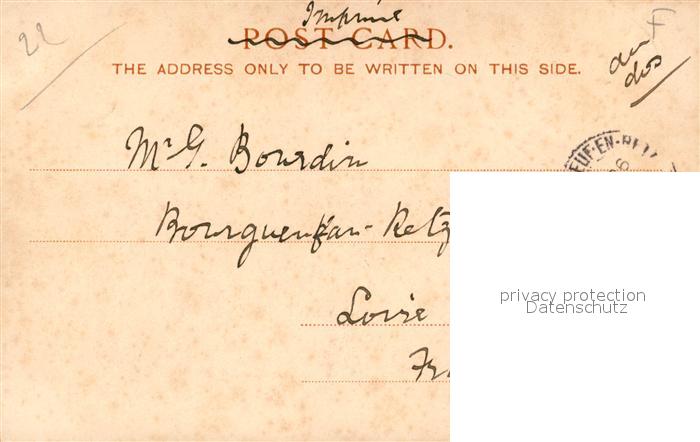 22
Imprimé
POST CARD.
F
THE ADDRESS ONLY TO BE WRITTEN ON THIS SIDE.
au
dos
Mr G. Bourdin
EUF-EN-RETZ
Bourgneuf-en-Retz
Loire
Fr
privacy protection
Datenschutz